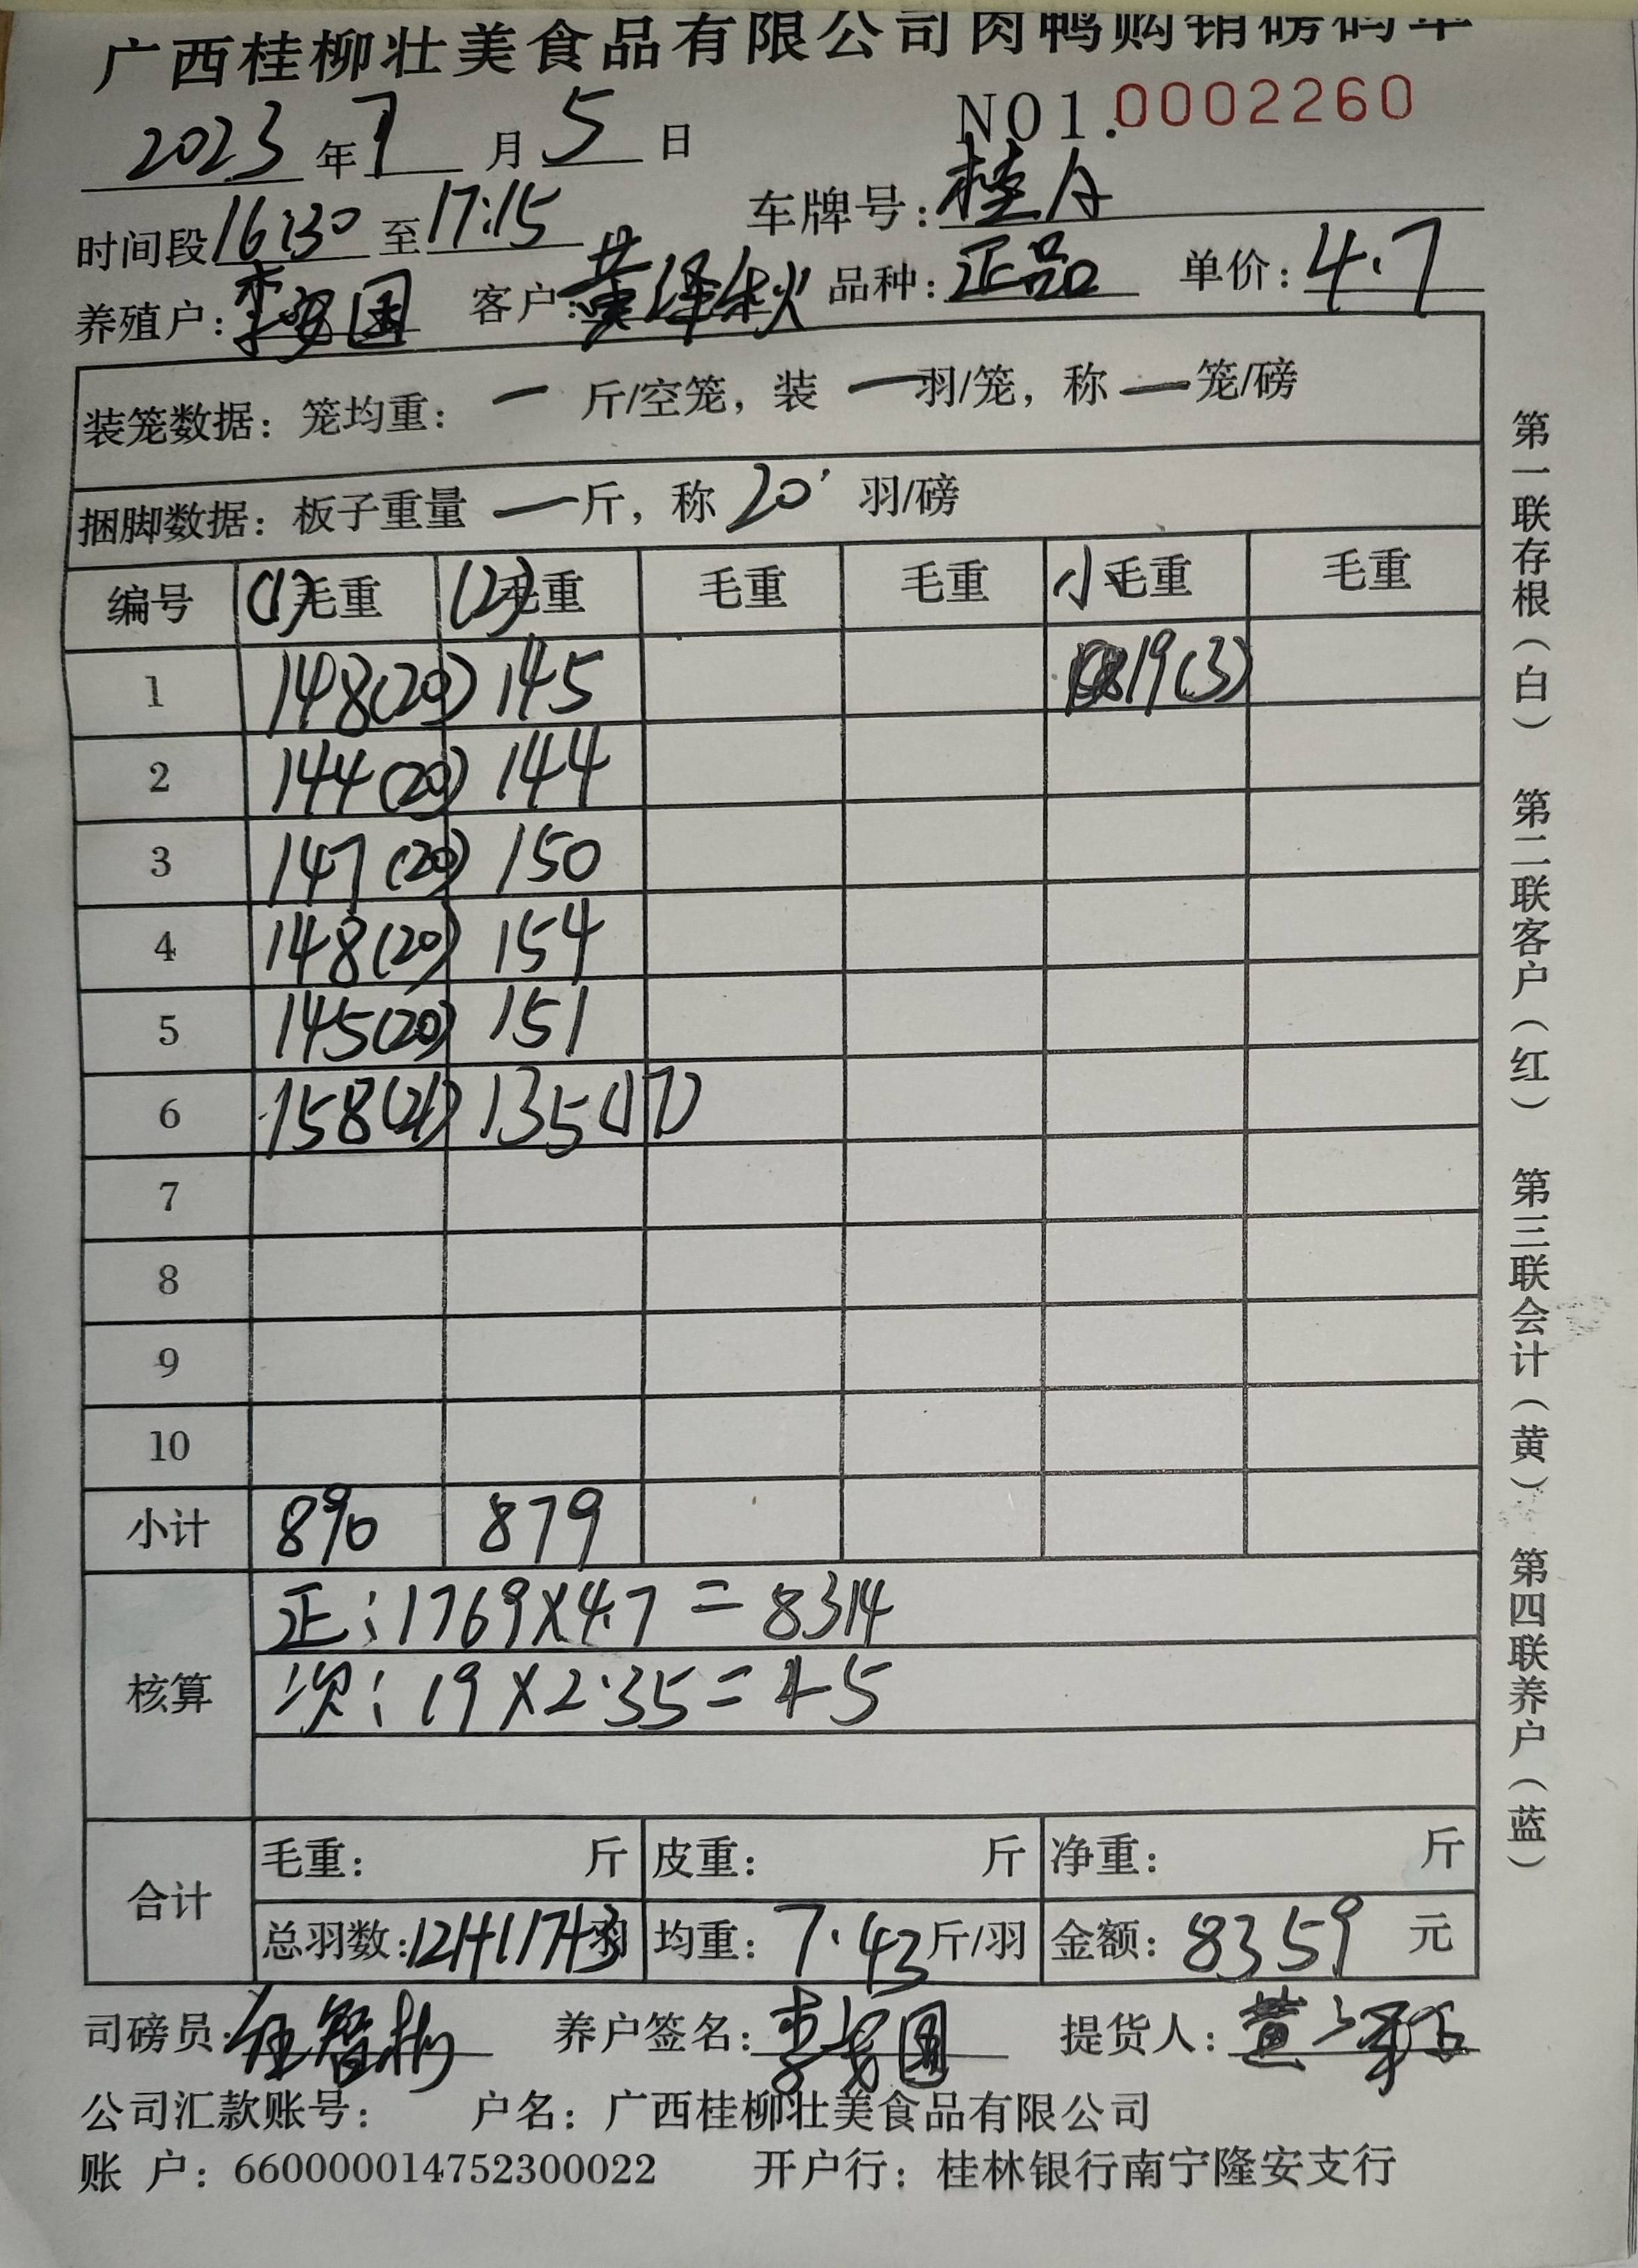 广西桂柳壮美食品有限公司肉鸭购销磅码单
2023年7月5日 NO1.0002260
时间段16:30至17:15 车牌号:桂A
养殖户:李安国 客户:黄泽秋 品种:正品 单价:4.7
装笼数据:笼均重:一斤/空笼,装一羽/笼,称一笼/磅
捆脚数据:板子重量一斤,称20羽/磅
编号 (1)毛重 (2)毛重 毛重 毛重 小毛重 毛重
1 148(20) 145 19(3)
2 144(20) 144
3 147(20) 150
4 148(20) 154
5 145(20) 151
6 158(21) 135(17)
7
8
9
10
小计 890 879
核算 正:1769×4.7=8314
次:19×2.35=45
合计 毛重: 斤 皮重: 斤 净重: 斤
总羽数:121+117+3羽 均重:7.43斤/羽 金额:8359元
司磅员: 养户签名:李安国 提货人:黄
公司汇款账号: 户名:广西桂柳壮美食品有限公司
账 户:660000014752300022 开户行:桂林银行南宁隆安支行
第一联存根(白) 第二联客户(红) 第三联会计(黄) 第四联养户(蓝)